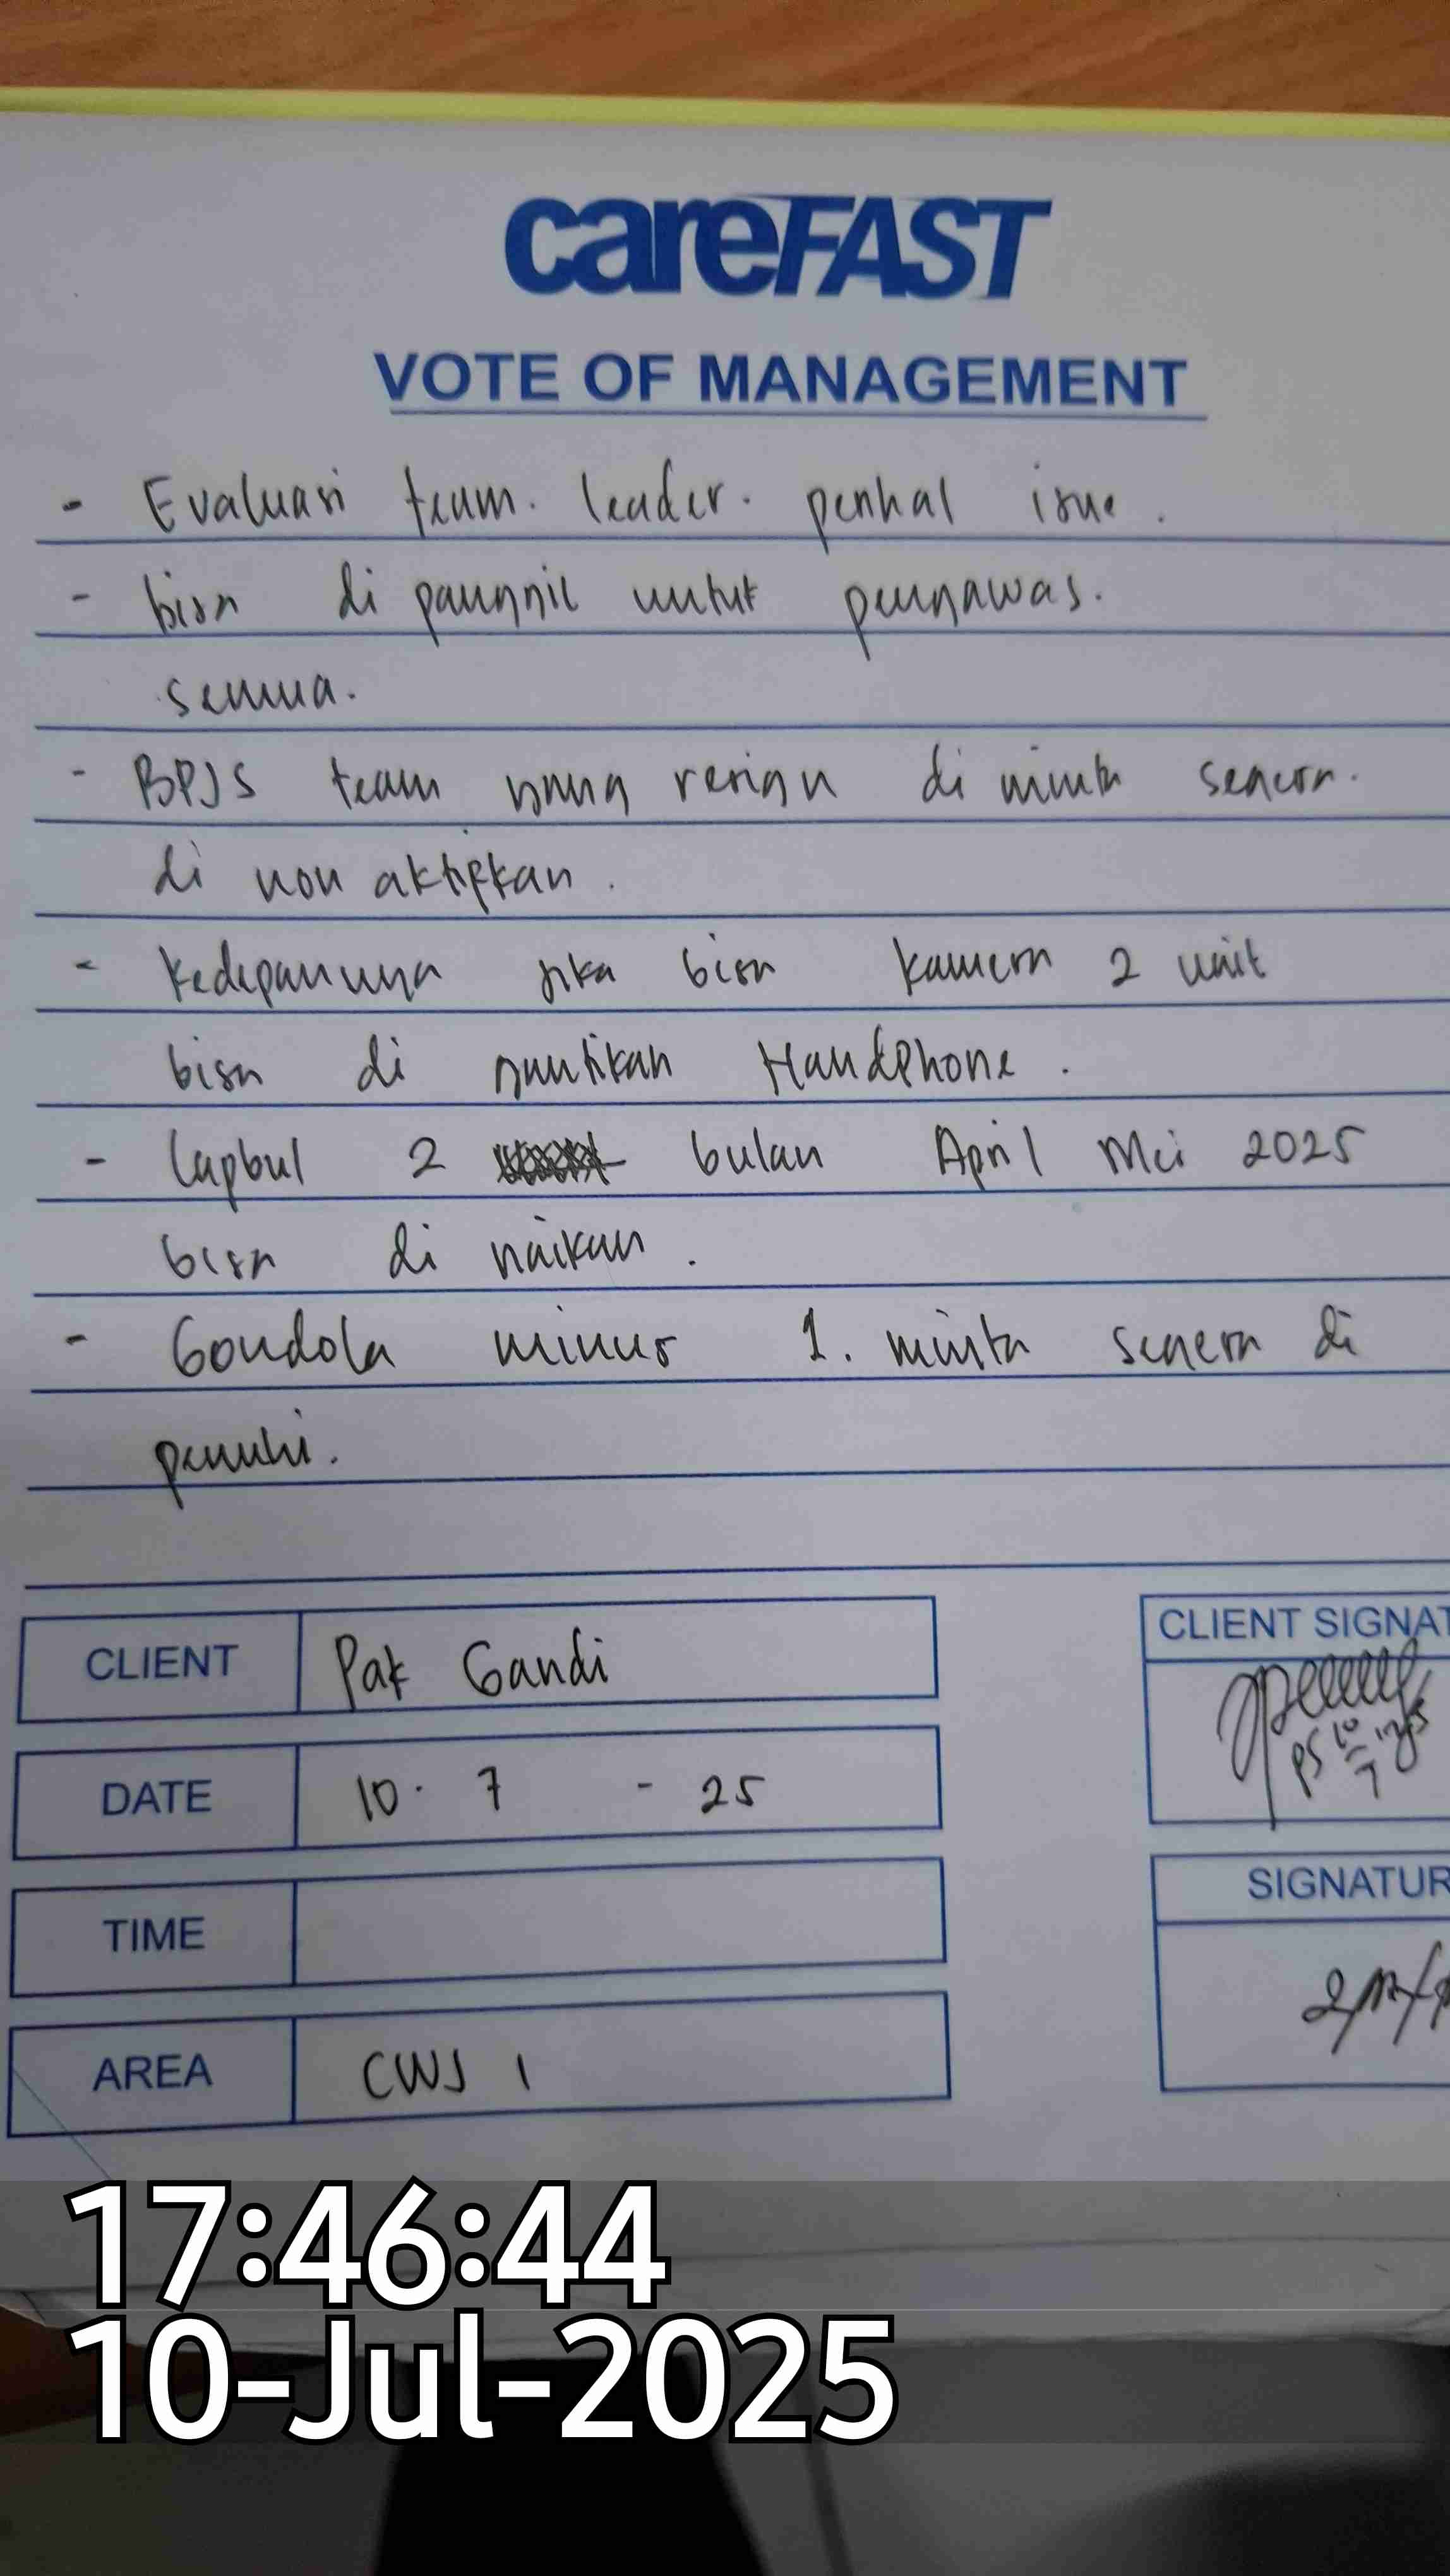 careFAST
VOTE OF MANAGEMENT
- Evaluasi team. leader. perihal isue.
- bisa di panggil untuk pengawas.
semua.
- BPJS team yang resign di minta segera.
di non aktifkan.
- Kedepannya jika bisa kamera 2 unit
bisa di gantikan Handphone.
- Lapbul 2 bulan April Mei 2025
bisa di naikan.
- Gondola minus 1. minta segera di
penuhi.
CLIENT Pak Gandi
CLIENT SIGNAT
DATE 10. 7 - 25
SIGNATUR
TIME
AREA CWJ 1
17:46:44
10-Jul-2025